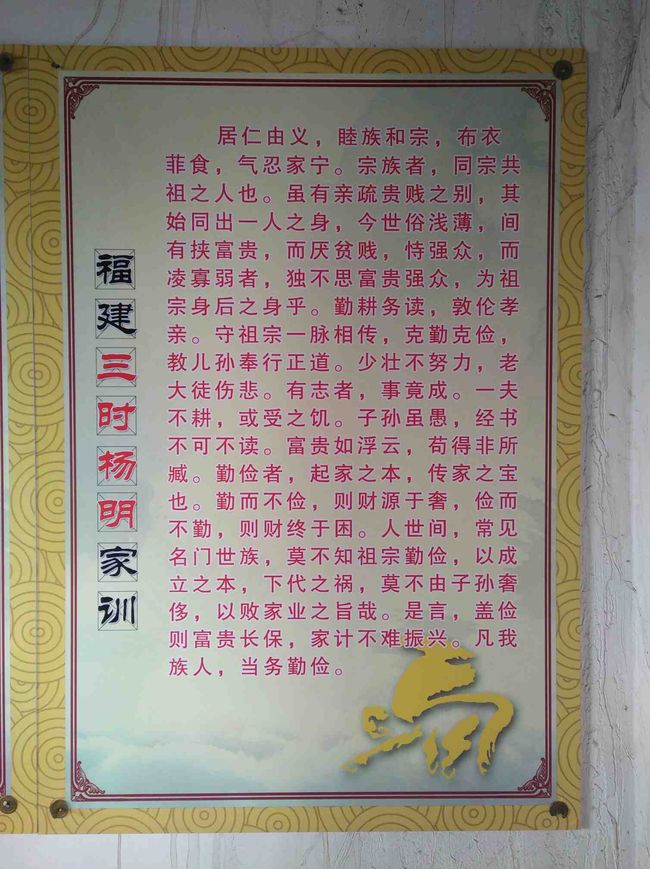 福建三时杨明家训
居仁由义，睦族和宗，布衣
菲食，气忍家宁。宗族者，同宗共
祖之人也。虽有亲疏贵贱之别，其
始同出一人之身，今世俗浅薄，间
有挟富贵，而厌贫贱，恃强众，而
凌寡弱者，独不思富贵强众，为祖
宗身后之身乎。勤耕务读，敦伦孝
亲。守祖宗一脉相传，克勤克俭，
教儿孙奉行正道。少壮不努力，老
大徒伤悲。有志者，事竟成。一夫
不耕，或受之饥。子孙虽愚，经书
不可不读。富贵如浮云，苟得非所
臧。勤俭者，起家之本，传家之宝
也。勤而不俭，则财源于奢，俭而
不勤，则财终于困。人世间，常见
名门世族，莫不知祖宗勤俭，以成
立之本，下代之祸，莫不由子孙奢
侈，以败家业之旨哉。是言，盖俭
则富贵长保，家计不难振兴。凡我
族人，当务勤俭。